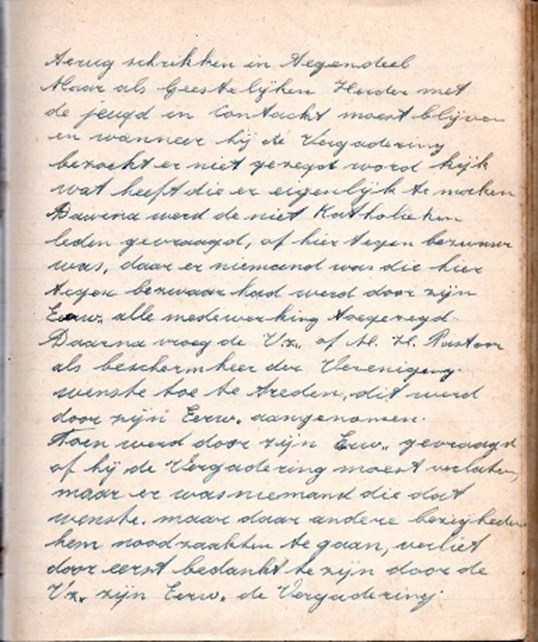 terug schrikken in tegendeel
Maar als Geestelijken Herder met
de jeugd in Contackt moest blijven
en wanneer hij de Vergadering
bezocht er niet gezegd word kijk
wat heeft die er eigenlijk te maken
Daarna werd de niet Katholieken
leden gevraagd, of hier tegen bezwaar
was, daar er niemand was die hier
tegen bezwaar had werd door zijn
Eerw. alle medewerking toegezegd.
Daarna vroeg de Vz. of M. H. Pastoor
als beschermheer der Vereniging
wenste toe te treden, dit werd
door zijn Eerw. aangenomen.
Toen werd door zijn Eerw. gevraagd
of hij de Vergadering moest verlaten,
maar er was niemand die dat
wenste. maar daar andere bezigheden
hem noodzaakten te gaan, verliet
door eerst bedankt te zijn door de
Vz. zijn Eerw. de Vergadering.